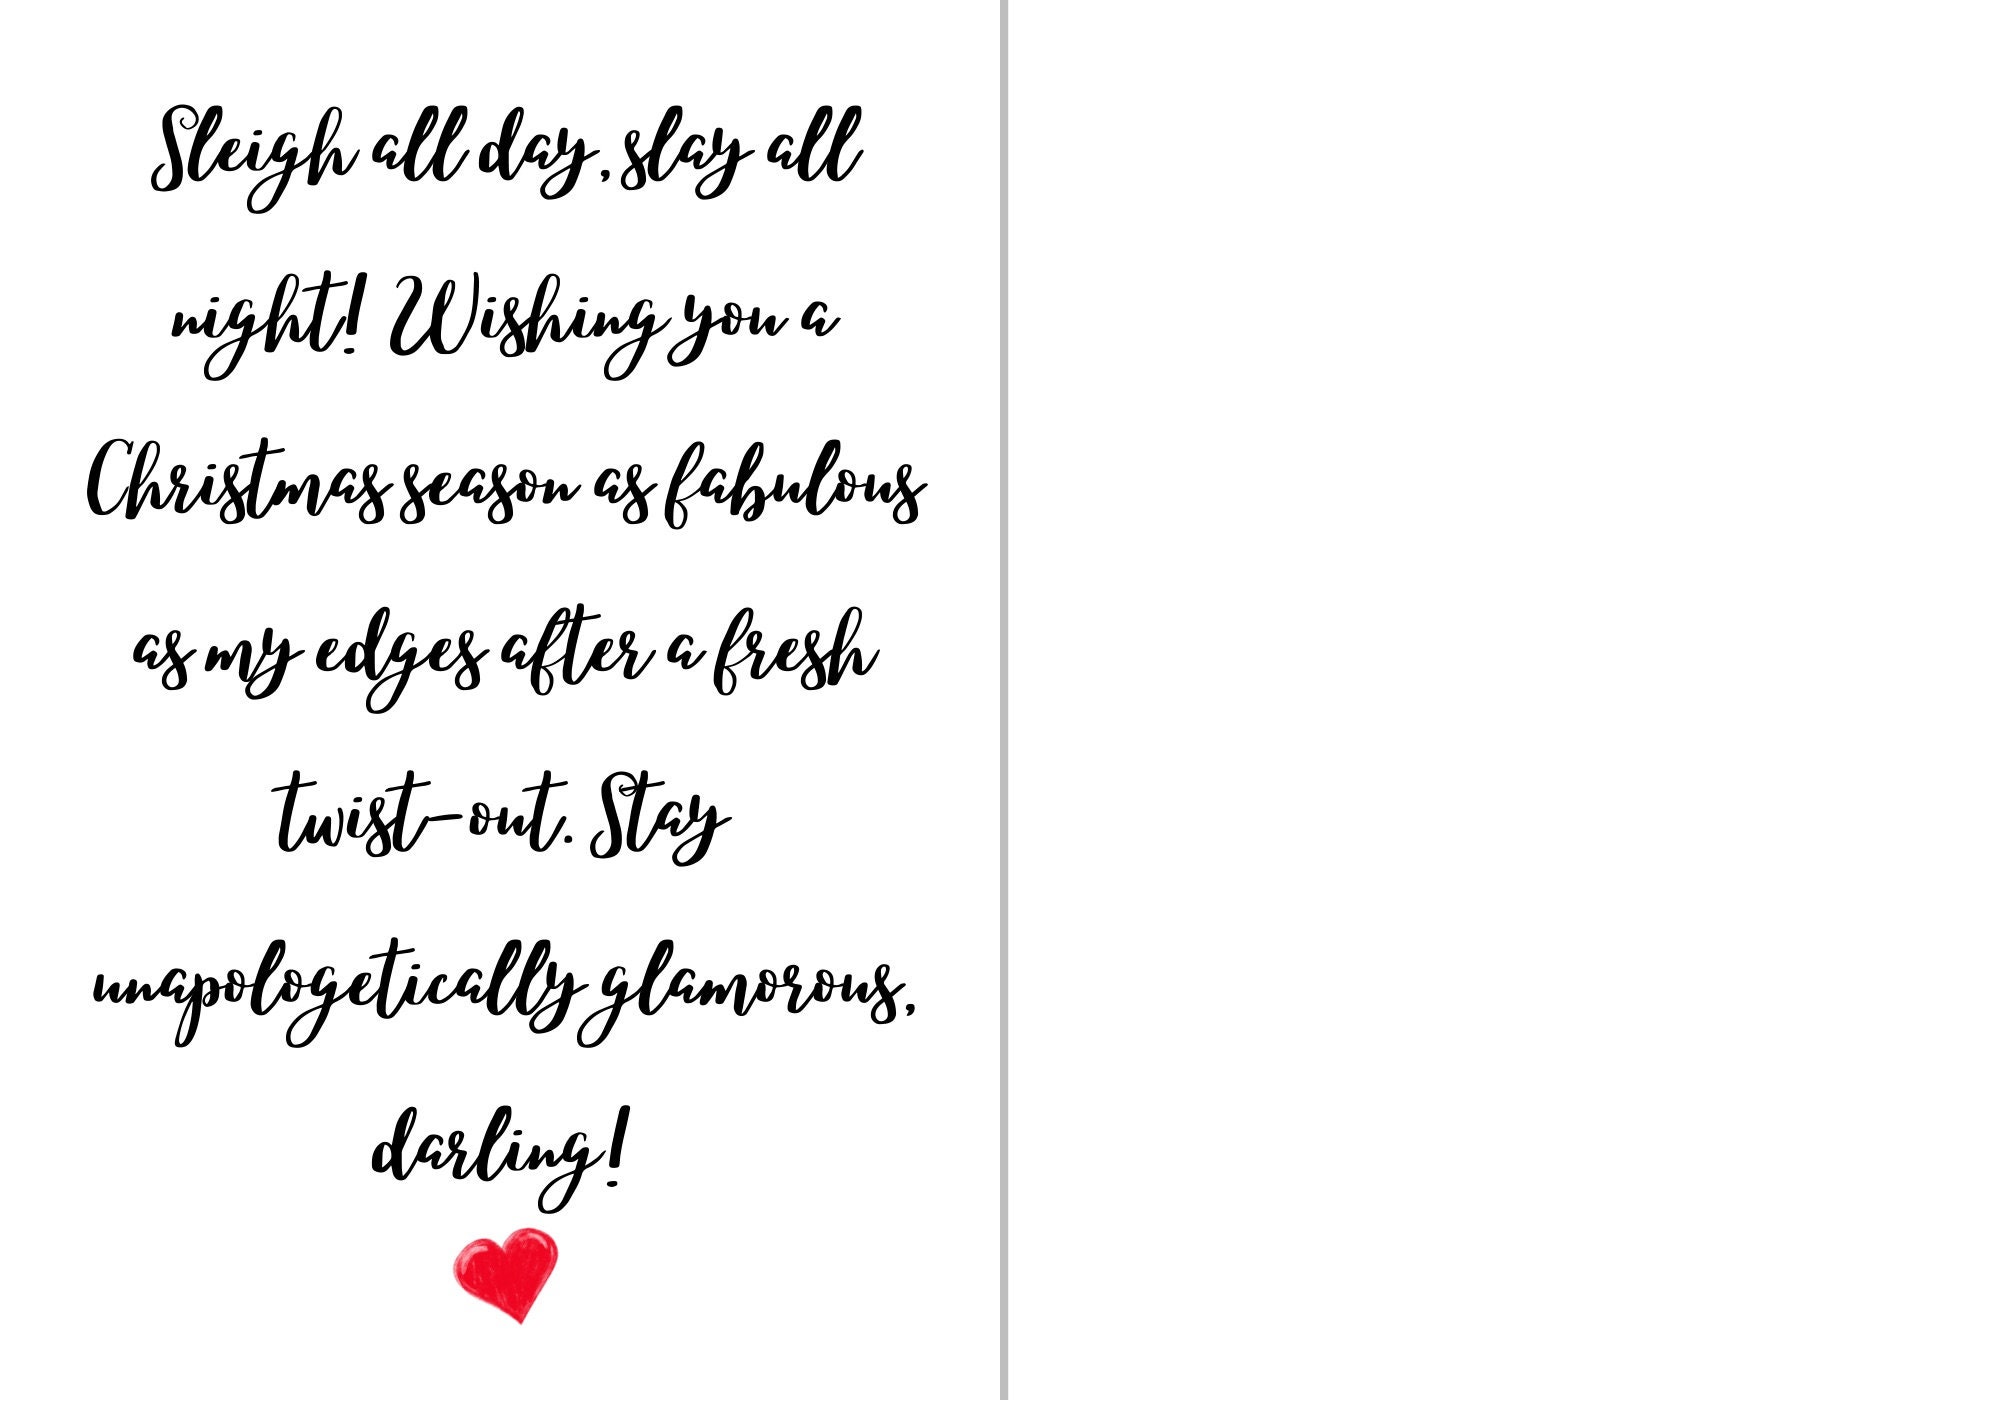 Sleigh all day, slay all
night! Wishing you a
Christmas season as fabulous
as my edges after a fresh
twist-out. Stay
unapologetically glamorous,
darling!